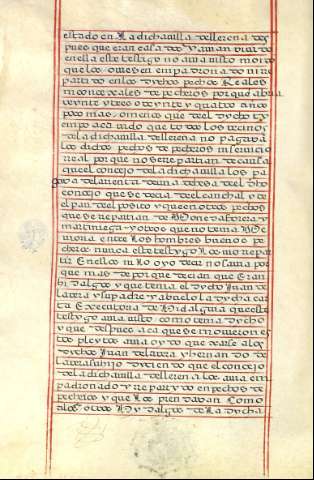 estado en la dicha villa de llerena des
pues que eran casados y avian bivido
en ella este testigo no avia visto moço
que los oviesen empadronado ni re
partido en los dichos pechos Reales
ni conçejales de pecheros porque abria
veynte y tres o veynte y quatro años
poco mas o menos que de el dicho ti
empo aca vido que todos los vecinos
de la dicha villa de llerena no pagaba
los dichos pechos de pecheros ni servicio
real por que no se repartian de causa
que el conçejo de la dicha villa los pa
gava de la renta de una dehesa de el dicho
conçejo que se dezia de el canchal y de
el pan de el posito y que en otros pechos
que se repartian de Moneda forera y
martiniega y otros que no tenia Me
moria entre los hombres buenos pe
cheros nunca este testigo los vio repar
tir En ellos ni lo oyo dezir no savia por
que mas de por que dezian que Eran
hi dalgos y que tenia el dicho Juan de
lavera y su padre y abuelo la dicha car
ta Executoria de Hidalguia que este
testigo avia visto como tenia dicho
y que despues aca que se movieron es
tos pleytos avia oydo quexarse a los
dichos Juan de lavera y hernando de
lavera su hijo diziendo que el conçejo
de la dicha villa de llerena los avia em
padronado y repartido en pechos de
pecheros y que los prendavan Como
a los otros Hydalgos de La dicha